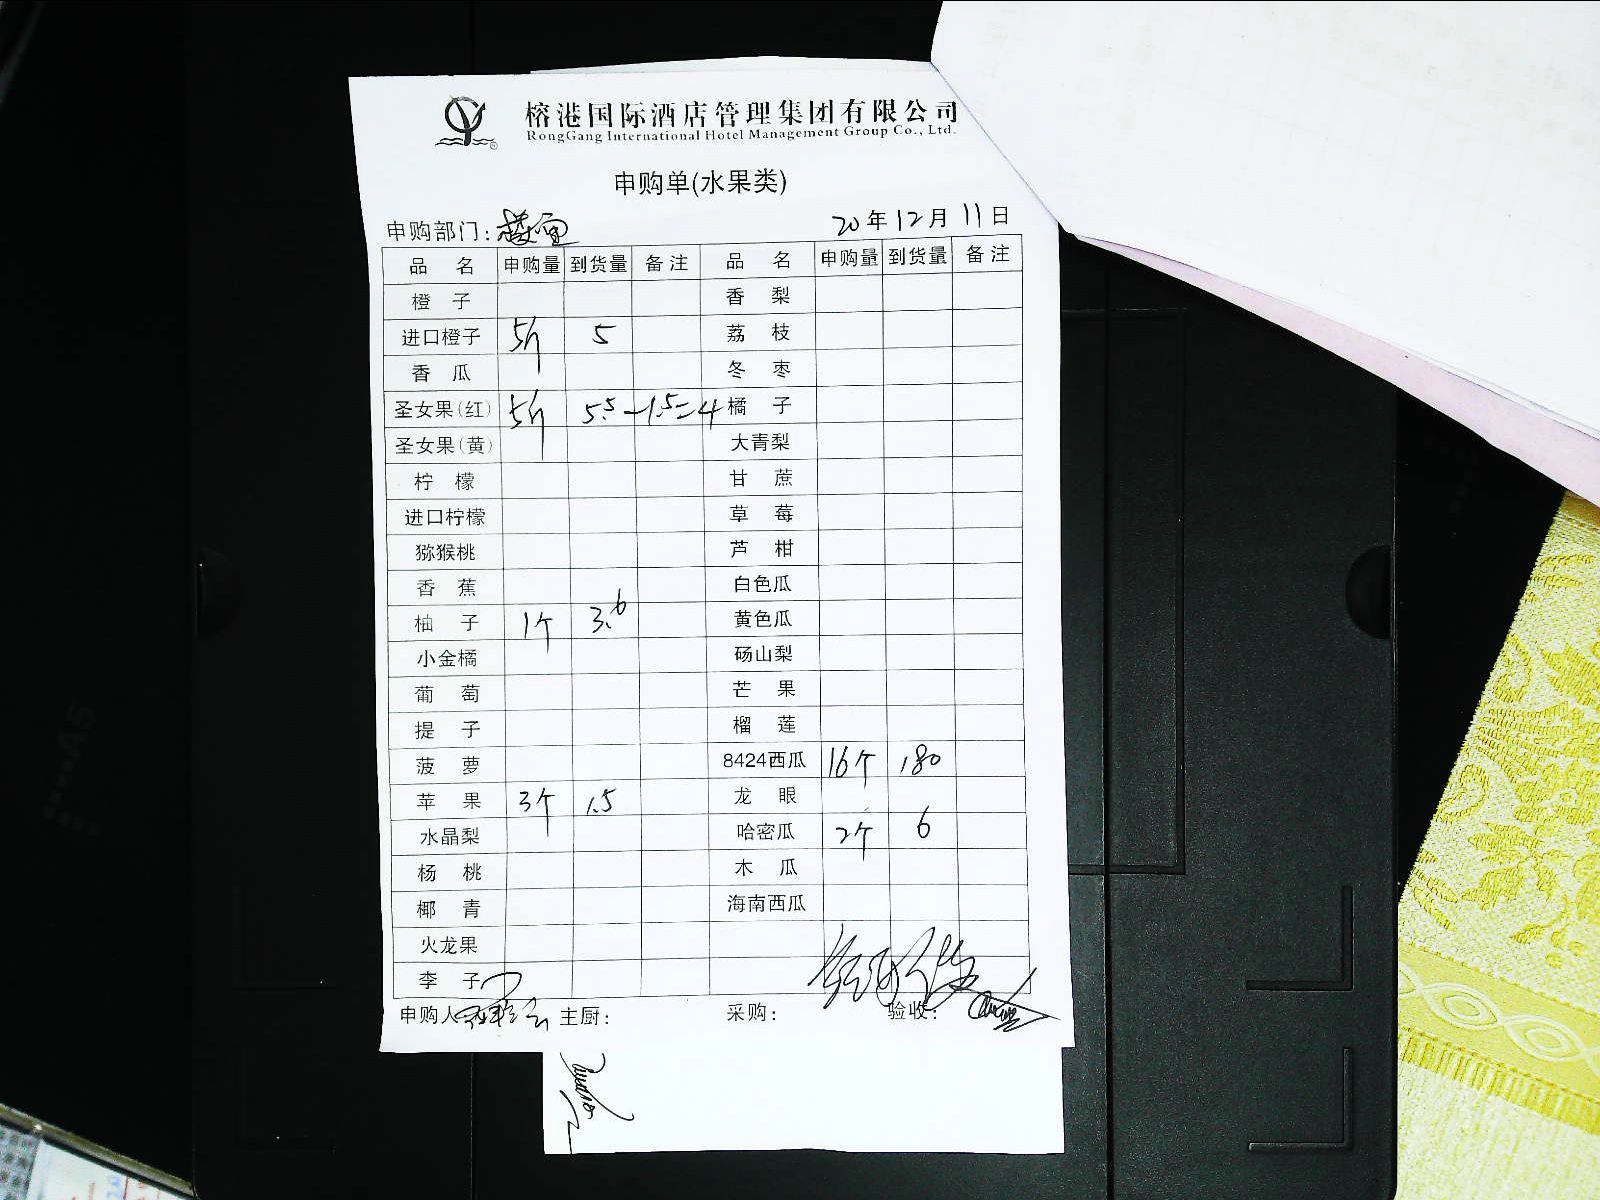 榕港国际酒店管理集团有限公司
RongGang International Hotel Management Group Co., Ltd.
申购单(水果类)
申购部门: 20年12月11日
品名 申购量 到货量 备注 品名 申购量 到货量 备注
橙子 香梨
进口橙子 5斤 5 荔枝
香瓜 冬枣
圣女果(红) 5斤 5.5-1.5=4 橘子
圣女果(黄) 大青梨
柠檬 甘蔗
进口柠檬 草莓
猕猴桃 芦柑
香蕉 白色瓜
柚子 1个 3.6 黄色瓜
小金橘 砀山梨
葡萄 芒果
提子 榴莲
菠萝 8424西瓜 16个 180
苹果 3个 1.5 龙眼
水晶梨 哈密瓜 2个 6
杨桃 木瓜
椰青 海南西瓜
火龙果
李子
申购人 主厨: 采购: 验收: